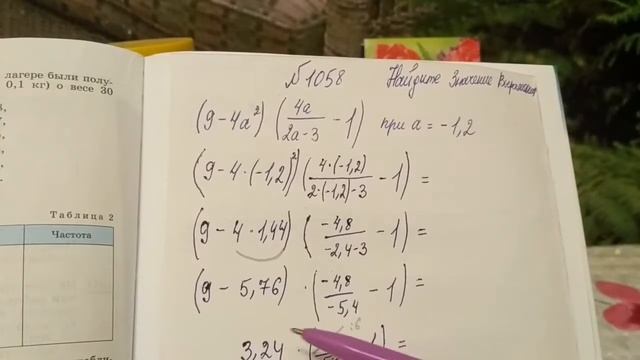 лагере были полу-
0,1 кг) о весе 30
Таблица 2
Частота
№1058 Найдите Значение Выражения
(9-4a²) (4a/2a-3 - 1) при a = -1,2
(9-4·(-1,2)²) (4·(-1,2)/2·(-1,2)-3 - 1) =
(9 - 4·1,44) (-4,8/-2,4-3 - 1) =
(9 - 5,76) · (-4,8/-5,4 - 1) =
3,24 · ( :6 1) =